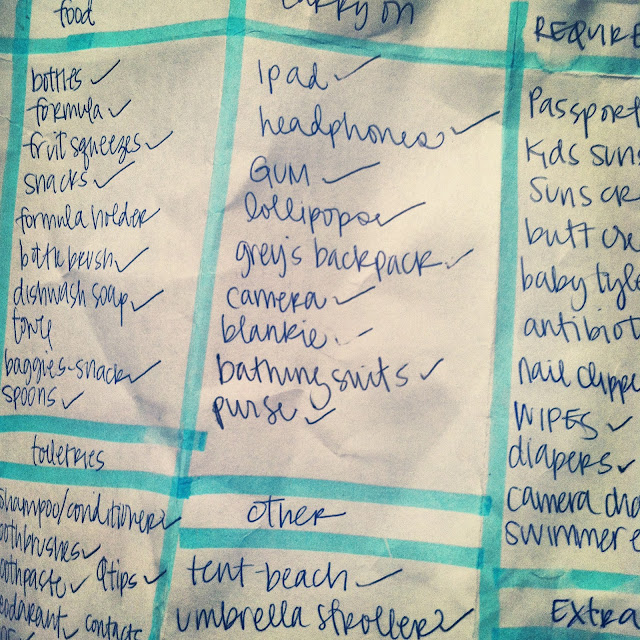 food
bottles ✓
formula ✓
fruit squeezes ✓
snacks ✓
formula holder
bottle brush ✓
dishwash soap ✓
baggies-snack ✓
spoons ✓
toiletries
shampoo/conditioner ✓
toothbrushes ✓
toothpaste ✓ Qtips ✓
deodarant ✓ contacts
carry on
ipad ✓
headphones ✓
GUM ✓
lollipops ✓
grey's backpack ✓
camera ✓
blankie ✓
bathing suits ✓
purse ✓
other
tent-beach ✓
umbrella stroller ✓
REQUIRE
Passport
Kids suns
Sunscr
butt cre
baby tyle
antibiot
nail clippe
WIPES ✓
diapers ✓
camera cha
swimmer
Extra